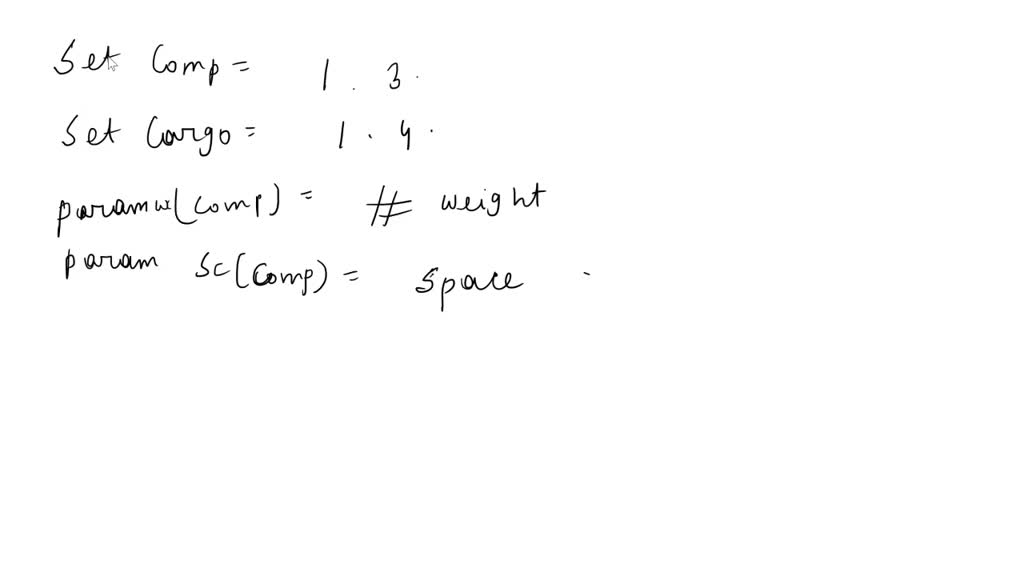 Set Comp = 1 . 3 .
Set Cargo = 1 . 4 .
param w(comp) = # weight
param Sc(Comp) = Space